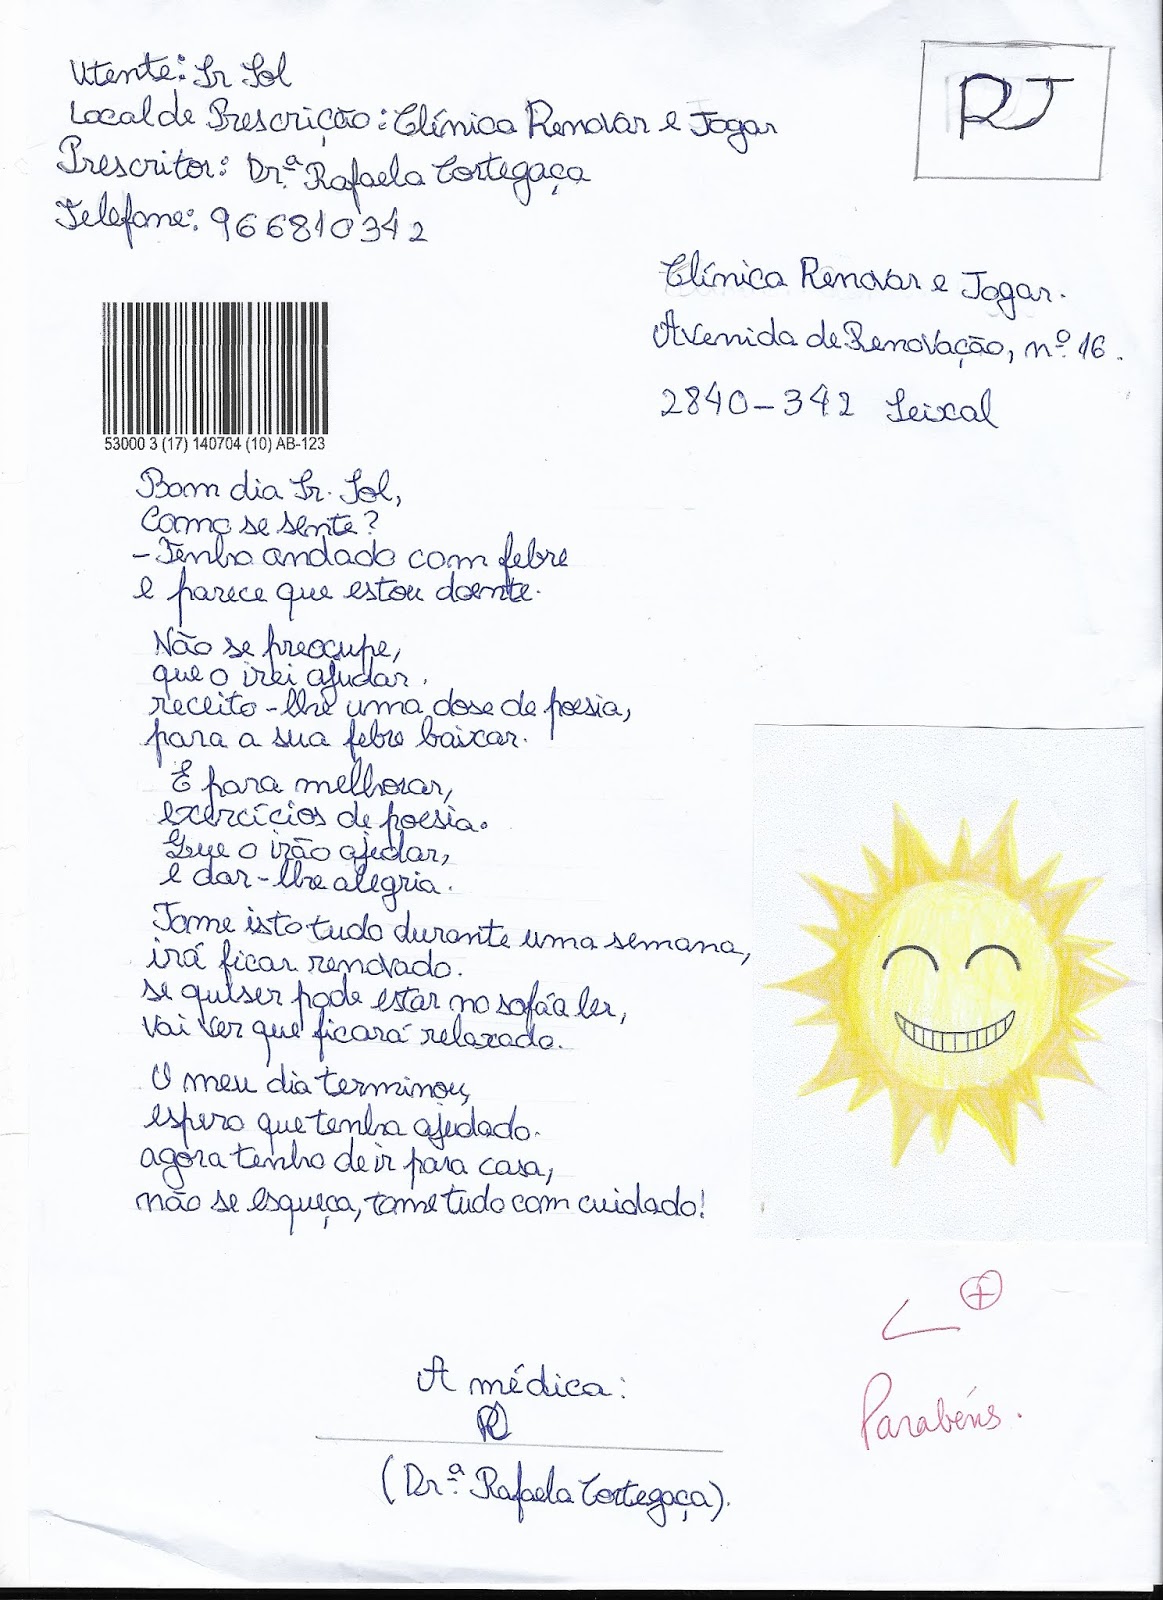 Utente: Sr Sol
Local de Prescrição: Clínica Renovar e Jogar
Prescritor: Dr.ª Rafaela Cortegaça
Telefone: 966810342
RJ
Clínica Renovar e Jogar.
Avenida de Renovação, nº 16.
2840-342 Seixal
53000 3 (17) 140704 (10) AB-123
Bom dia Sr. Sol,
Como se sente?
- Tenho andado com febre
e parece que estou doente.
Não se preocupe,
que o irei ajudar.
receito-lhe uma dose de poesia,
para a sua febre baixar.
E para melhorar,
exercícios de poesia.
Que o irão ajudar,
e dar-lhe alegria.
Tome isto tudo durante uma semana,
irá ficar renovado.
se quiser pode estar no sofá a ler,
vai ver que ficará relaxado.
O meu dia terminou,
espero que tenha ajudado.
agora tenho de ir para casa,
não se esqueça, tome tudo com cuidado!
A médica:
(Dr.ª Rafaela Cortegaça).
Parabéns.